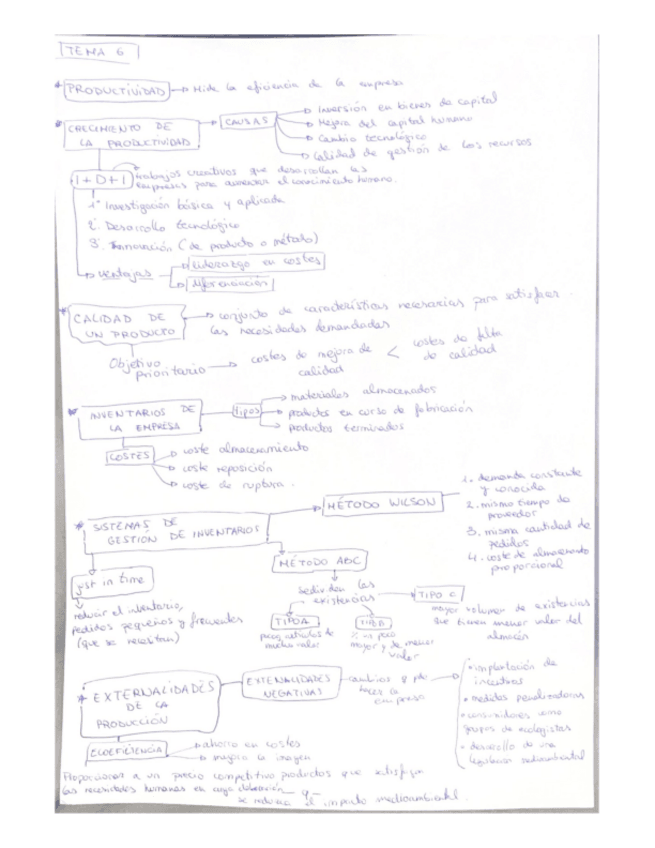 TEMA 6
* PRODUCTIVIDAD → Mide la eficiencia de la empresa
* CRECIMIENTO DE LA PRODUCTIVIDAD
CAUSAS
→ Inversión en bienes de capital
→ Mejora del capital humano
→ Cambio tecnológico
→ Calidad de gestión de los recursos
I+D+I
trabajos creativos que desarrollan las
empresas para aumentar el conocimiento humano.
1º Investigación básica y aplicada
2º Desarrollo tecnológico
3º Innovación (de producto o método)
→ ventajas
→ Liderazgo en costes
→ diferenciación
* CALIDAD DE UN PRODUCTO
→ conjunto de características necesarias para satisfacer
las necesidades demandadas
Objetivo prioritario → costes de mejora de calidad < costes de falta de calidad
* INVENTARIOS DE LA EMPRESA
tipos
→ materiales almacenados
→ productos en curso de fabricación
→ productos terminados
COSTES
→ coste almacenamiento
→ coste reposición
→ coste de ruptura.
* SISTEMAS DE GESTIÓN DE INVENTARIOS
MÉTODO WILSON
1. demanda constante
y conocida
2. mismo tiempo de
proveedor
3. misma cantidad de
pedidos
4. coste de almacenamiento
proporcional
MÉTODO ABC
se dividen las
existencias
TIPO A
pocos artículos de
mucho valor
TIPO B
mayor y de menor
valor
TIPO C
mayor volumen de existencias
que tienen menor valor del
almacén
just in time
reducir el inventario,
pedidos pequeños y frecuentes
(que se necesitan)
* EXTERNALIDADES
DE LA
PRODUCCIÓN
EXTENALIDADES
NEGATIVAS
cambios q
hacer la
empresa
• implantación de
incentivos
• medidas penalizadoras
• consumidores como
grupos de ecologistas
• desarrollo de una
legislación medioambiental
ECOEFICIENCIA
→ ahorro en costes
→ mejora la imagen
Proporcionar a un precio competitivo productos que satisfagan
las necesidades humanas en cuya elaboración
se reduzca el impacto medioambiental.